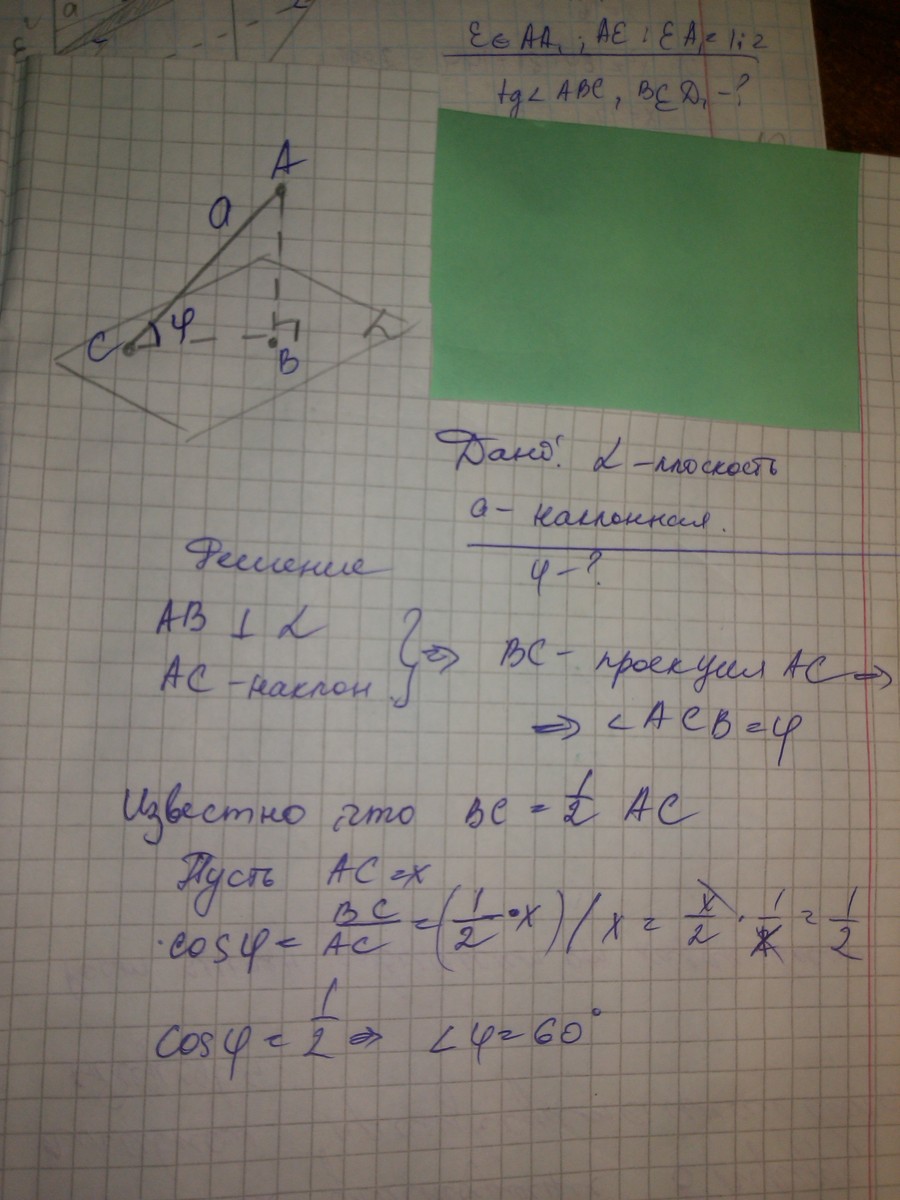 a
ε ∈ AA₁ ; AE : EA₁ = 1:2
tg < ABC, BED₁ - ?
A
a
φ
C
B
α
Дано: α - плоскость
a - наклонная.
φ - ?
Решение
AB ⊥ α
AC - наклон
} => BC - проекция AC =>
=> <ACB = φ
Известно, что BC = 1/2 AC
Пусть AC = x
cosφ = BC/AC = (1/2 · x) / x = x/2 · 1/x = 1/2
cosφ = 1/2 => <φ = 60°